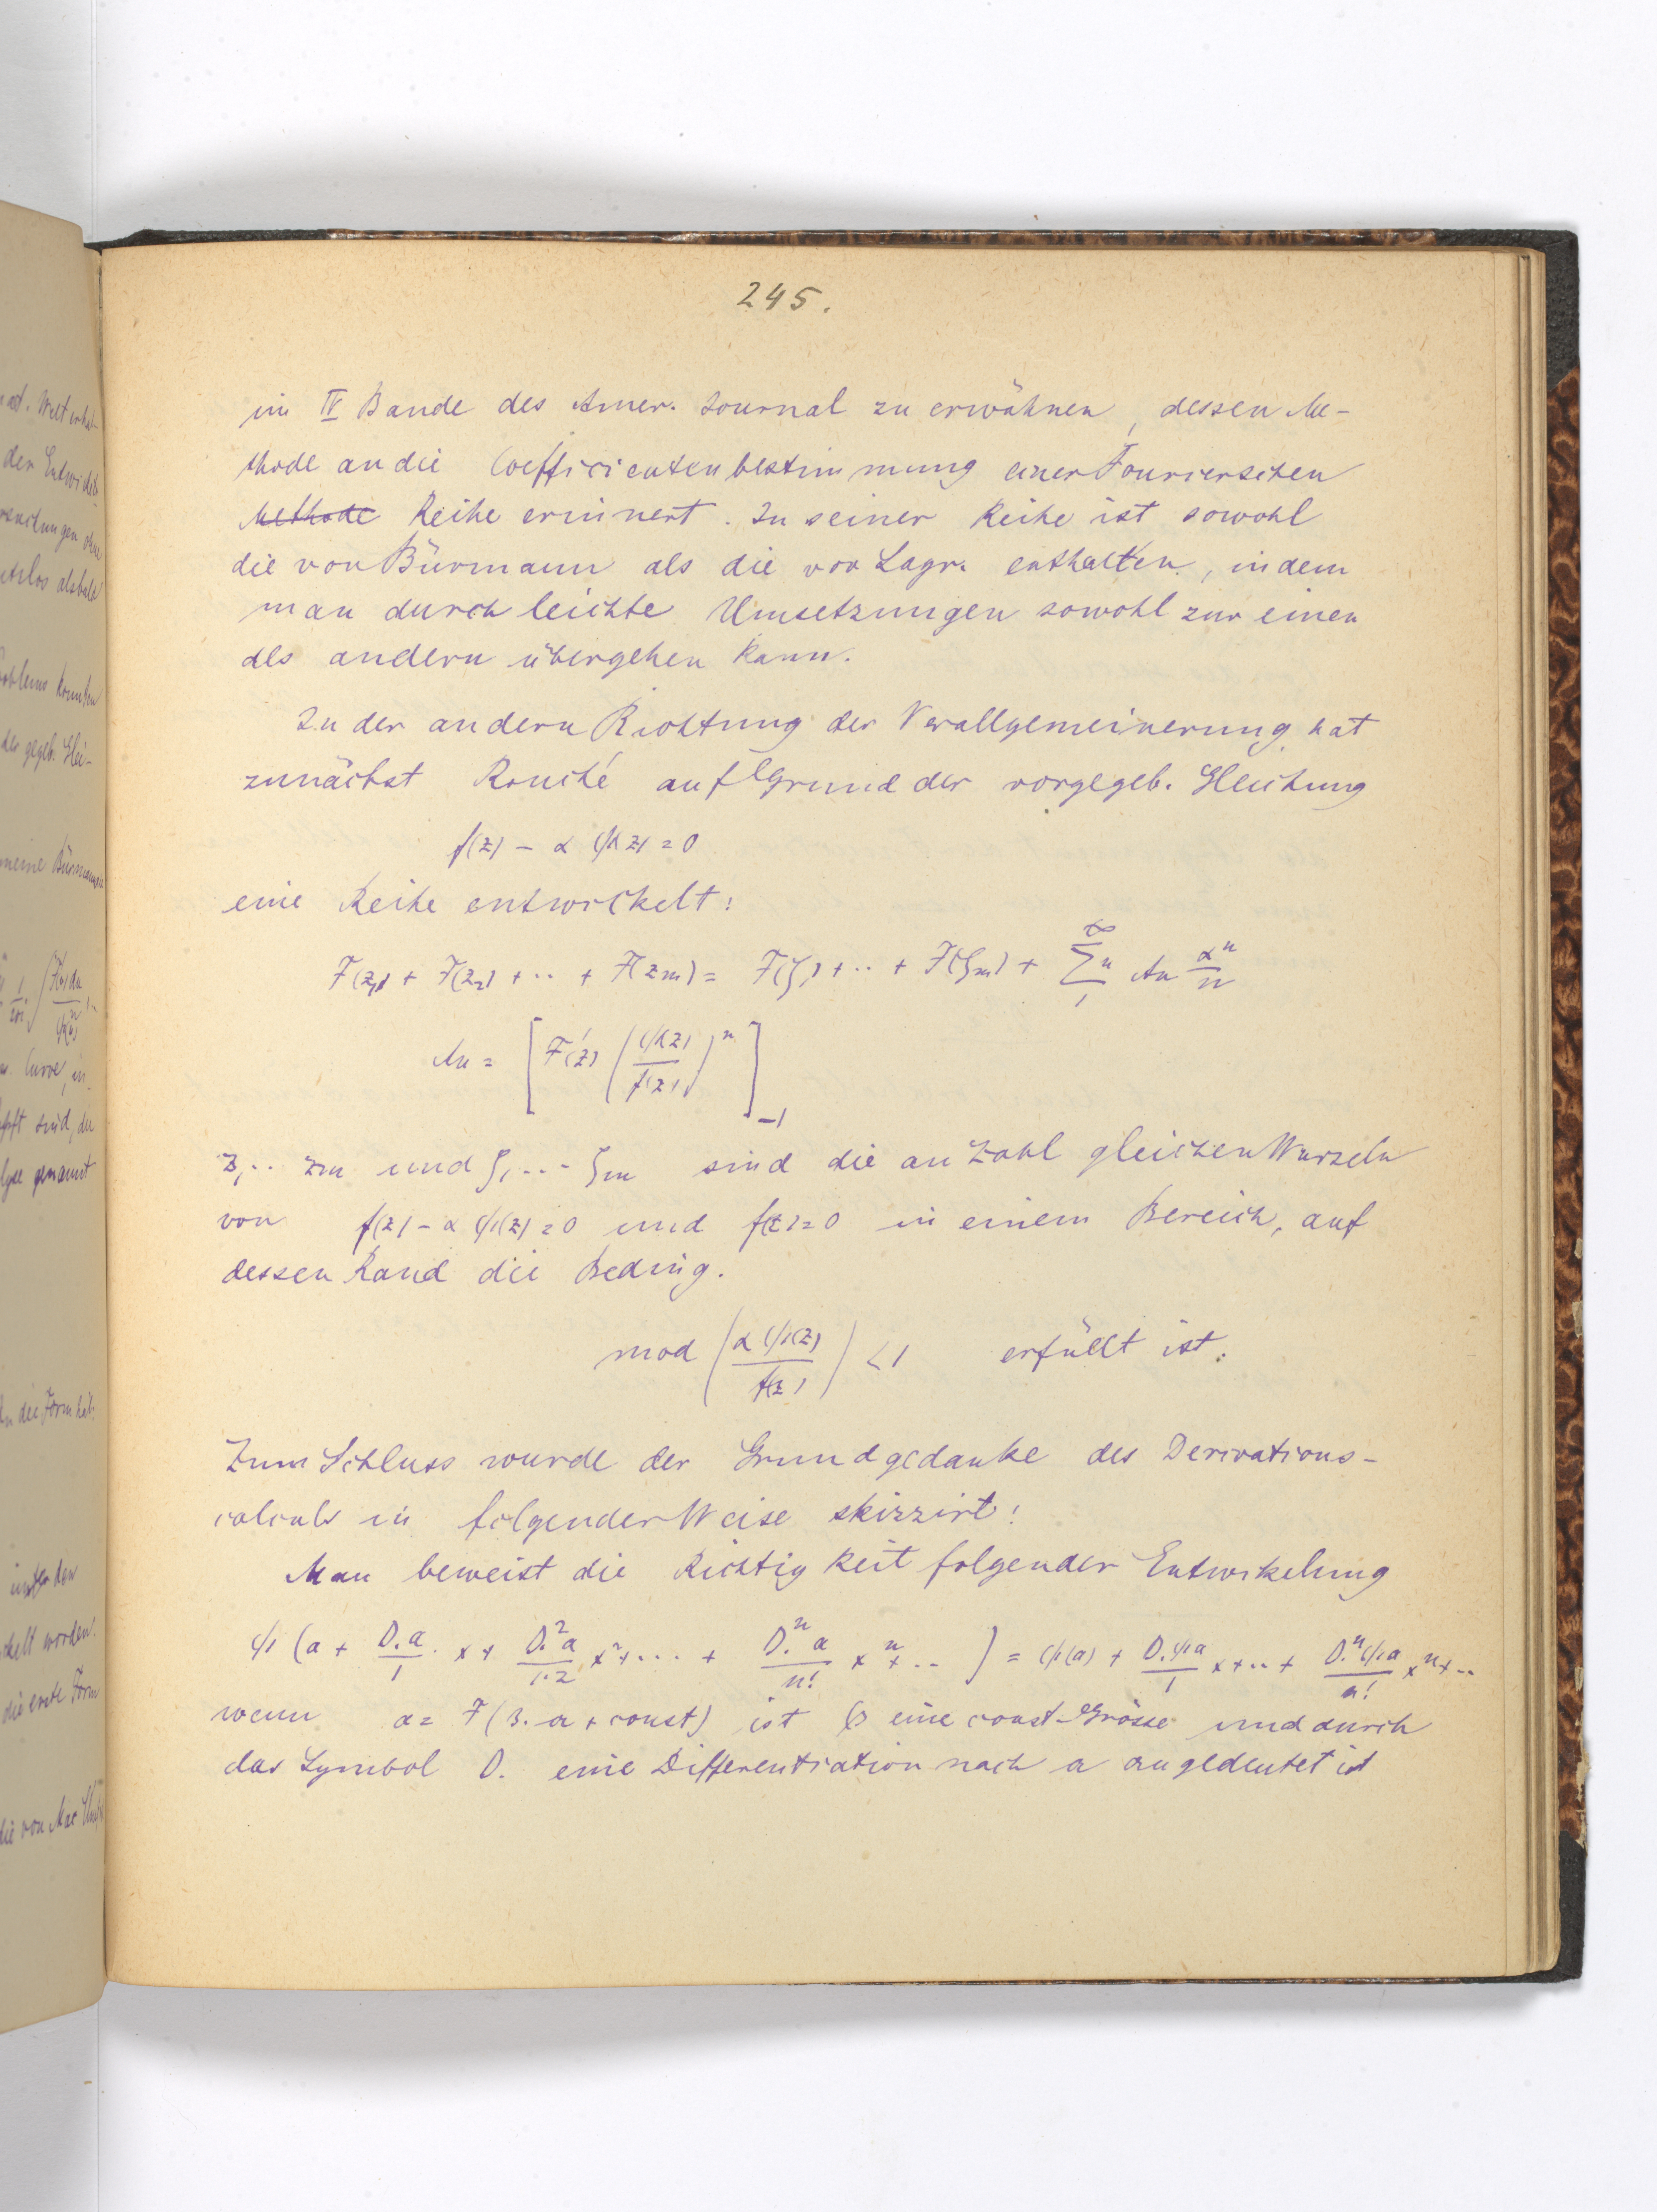 245.
im IV Bande des Amer. Journal zu erwähnen, dessen Me-
thode an die Coefficientenbestimmung einer Fourierschen
Methode Reihe erinnert. In seiner Reihe ist sowohl
die von Bürmann als die von Lagr. enthalten, indem
man durch leichte Umsetzungen sowohl zur einen
als andern übergehen kann.
In der andern Richtung der Verallgemeinerung hat
zunächst Rouché auf Grund der vorgegeb. Gleichung
f(z) - α ψ(z) = 0
eine Reihe entwickelt:
F(z₁) + F(z₂) + ·· + F(zm) = F(ζ₁) + ·· + F(ζm) + Σ₁^∞ n An αⁿ/n
An = [F'(z) (ψ(z)/f(z))ⁿ]₋₁
z₁ ·· zm und ζ₁ ··· ζm sind die an Zahl gleichen Wurzeln
von f(z) - α ψ(z) = 0 und f(z) = 0 in einem Bereich, auf
dessen Rand die Beding.
mod (α ψ(z)/f(z)) < 1 erfüllt ist.
Zum Schluss wurde der Grundgedanke des Derivations-
calculs in folgender Weise skizzirt:
Man beweist die Richtigkeit folgender Entwickelung
ψ(a + D.a/1 · x + D.²a/1·2 x² + ··· + D.ⁿa/n! xⁿ + ··) = ψ(a) + D.ψa/1 x + ·· + D.ⁿψa/n! xⁿ + ··
wenn a = F(β.a + const) ist β eine const-Grösse und durch
das Symbol D. eine Differentiation nach a angedeutet ist